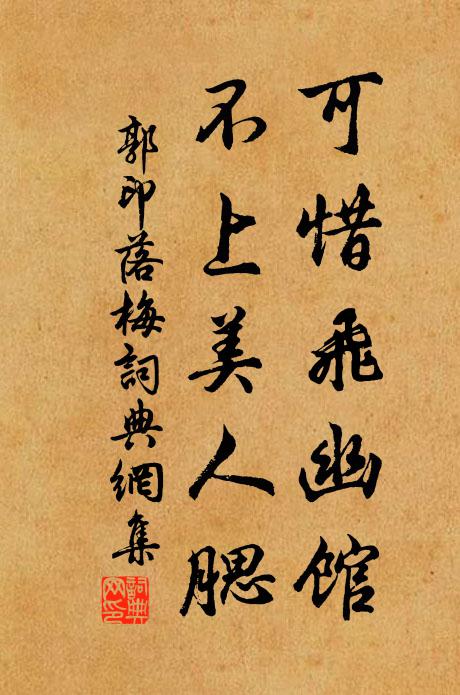 可惜飛幽館
不上美人腮
郭印落梅詞典網集
詞典網印